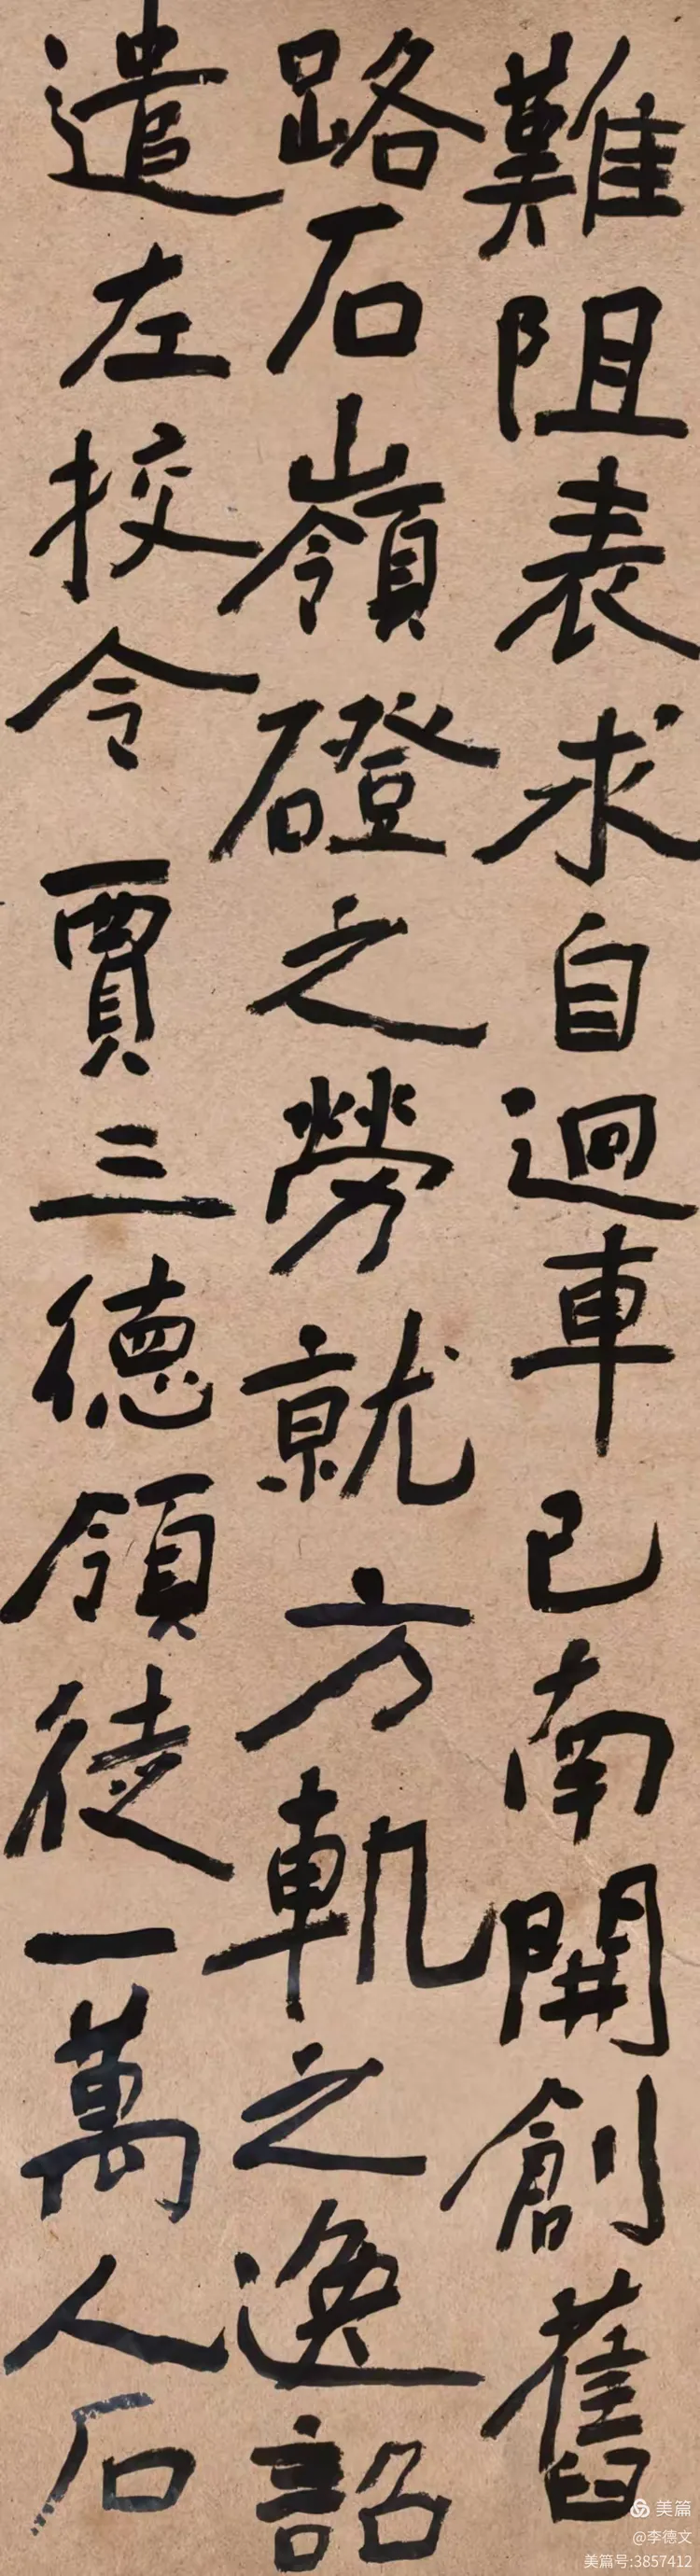 難阻表求自迴車已南開創舊
路石嶺磴之勞就方軌之逸詔
遣左挍令賈三德領徒一萬人石
美篇
@李德文
美篇号:3857412